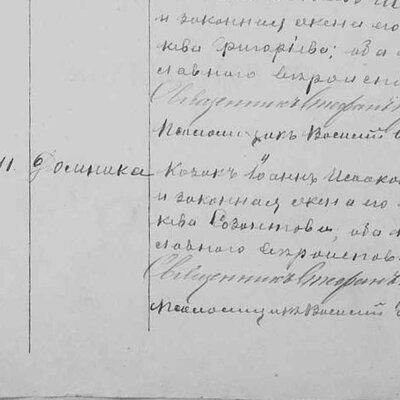 и законная жена его
кова Григорьева; оба
славнаго вероиспо
Священникъ Стефанъ
Псаломщикъ Василий
11. 9 Домника Козакъ Іоаннъ Исаако
и законная жена его
кова Созонтова; оба
славнаго вероиспов
Священникъ Стефанъ
Псаломщикъ Василий